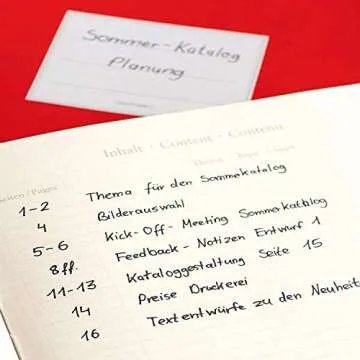 Sommer-Katalog
Planung
Inhalt · Content · Contenu
Seiten / Pages
1-2 Thema für den Sommekatalog
4 Bilderauswahl
5-6 Kick-Off-Meeting Sommerkatalog
8ff. Feedback-Notizen Entwurf 1
11-13 Kataloggestaltung Seite 15
14 Preise Druckerei
16 Textentwürfe zu den Neuheit